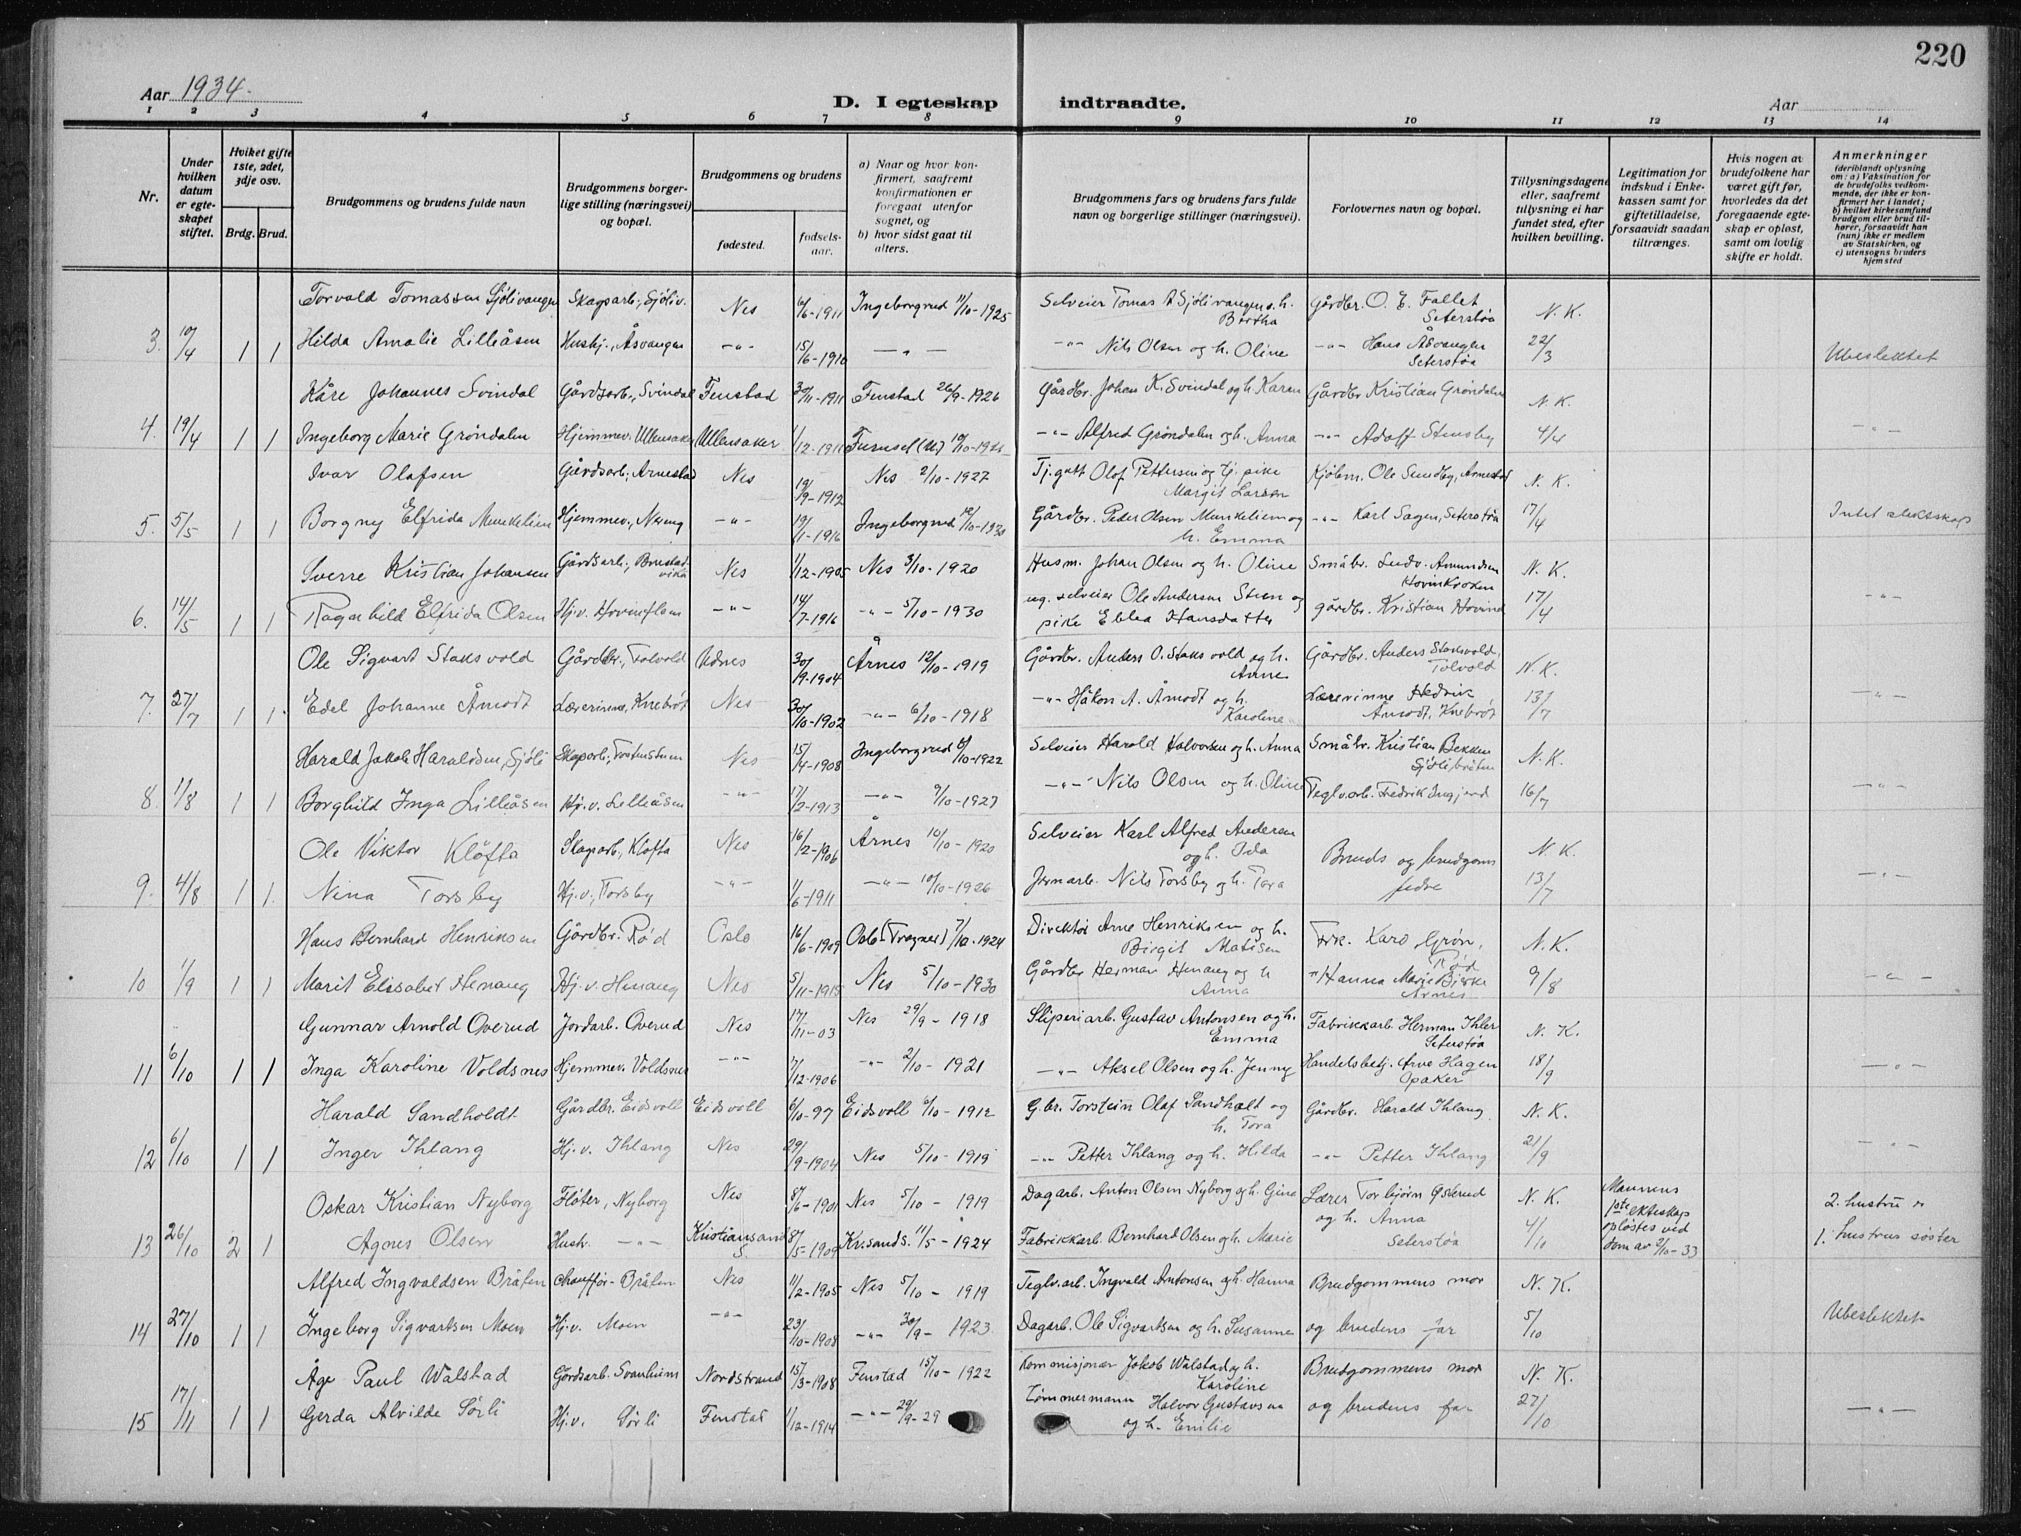 220
Aar 1934.
D. I egteskap indtraadte.
Aar
1 2 3 4 5 6 7 8 9 10 11 12 13 14
Nr.
Under hvilken datum er egteskapet stiftet.
Hviket gifte 1ste, 2det, 3dje osv.
Brdg. Brud.
Brudgommens og brudens fulde navn
Brudgommens borgerlige stilling (næringsvei) og bopæl.
Brudgommens og brudens
fødested.
fødselsaar.
a) Naar og hvor konfirmert, saafremt konfirmationen er foregaat utenfor sognet, og
b) hvor sidst gaat til alters.
Brudgommens fars og brudens fars fulde navn og borgerlige stillinger (næringsvei).
Forlovernes navn og bopæl.
Tillysningsdagene eller, saafremt tillysning ei har fundet sted, efter hvilken bevilling.
Legitimation for indskud i Enkekassen samt for giftetilladelse, forsaavidt saadan tiltrænges.
Hvis nogen av brudefolkene har været gift før, hvorledes da det foregaaende egteskap er opløst, samt om lovlig skifte er holdt.
Anmerkninger (deriblandt oplysning om: a) Vaksination for de brudefolks vedkommende, der ikke er konfirmert her i landet; b) hvilket kirkesamfund brudgom eller brud tilhører, forsaavidt han (hun) ikke er medlem av Statskirken, og c) utensogns bruders hjemsted
Torvald Tomassen Sjølivangen Skogsarb., Sjøliv. Nes 6/6-1911 Ingeborgrud 11/10-1925 Selveier Tomas A Sjølivangen o. h. Bertha Gårdbr. O. E. Fallet Seterstøa N. K.
3. 10/4 1 1 Hilda Amalie Lilleåsen Hushj., Åsvangen -"- 15/6-1910 -"- -"- Nils Olsen og h. Oline -"- Hans Åsvangen Seterstøa 22/3 Ubeslektet
Kåre Johannes Svindal Gårdsarb., Svindal Fenstad 30/11-1911 Fenstad 26/9-1926 Gårdbr. Johan K. Svindal og h. Karen Gårdbr Kristian Grøndalen N. K.
4. 19/4 1 1 Ingeborg Marie Grøndalen Hjemmev. Ullensaker Ullensaker 1/12-1911 Furuset (U) -"- Alfred Grøndalen og h. Anna -"- Adolf Stensby 4/4 -"-
Ivar Olafsen Gårdsarb. Arnestad Nes 19/9-1912 Nes 2/10-1927 Tj.gutt Olof Pettersen og tj. pike Margit Larsen Kjøbm. Ole Sundby, Arnestad N. K.
5. 5/5 1 1 Borgny Elfrida Munkelien Hjemmev., Nereng -"- 19/1-1916 Ingeborgrud 12/10-1930 Gårdbr. Peder Olsen Munkelien og h. Emma -"- Karl Sagen, Seterstøa 17/4 Intet slektskap
Sverre Kristian Johansen Gårdsarb., Brustadvika Nes 1/12-1905 Nes 3/10-1920 Husm. Johan Olsen og h. Oline Småbr. Ludv. Amundsen Hovinkroken N. K.
6. 14/5 1 1 Ragnhild Elfrida Olsen Hj.v. Hovinflem -"- 14/7-1916 -"- 5/10-1930 ug. selveier Ole Andersen Steen og pike Ebba Hansdatter gårdbr. Kristian Hovind 17/4 -"-
Ole Sigvart Staksvold Gårdbr., Tolvold Udnes 30/9-1904 Årnes 12/10-1919 Gårdbr. Anders O. Staksvold og h. Anne Gårdbr. Anders Staksvold, Tolvold N. K.
7. 27/7 1 1 Edel Johanne Åmodt Lærerinne, Knebrøt Nes 30/10-1902 -"- 6/10-1918 -"- Håkon A. Åmodt og h. Karoline Lærerinne Hedvik Åmodt, Knebrøt 13/7 -"-
Harald Jakob Haraldsen, Sjøli Skogsarb., Nes 15/4-1908 Ingeborgrud 8/10-1922 Selveier Harald Halvorsen og h. Anna Småbr. Kristian Bekken Sjølibråten N. K.
8. 11/8 1 1 Borghild Inga Lilleåsen Hj.v. Lilleåsen -"- 17/2-1913 -"- 9/10-1927 -"- Nils Olsen og h. Oline Teglv.arb. Fredrik Ingjerd 16/7 -"-
Ole Viktor Kløfta Skogsarb., Kløfta Nes 16/2-1906 Årnes 10/10-1920 Selveier Karl Alfred Andersen og h. Ida Bruds og brudgoms fedre N. K.
9. 4/8 1 1. Nina Torsby Hj.v., Torsby -"- 1/6-1911 -"- 10/10-1926 Jernarb. Nils Torsby og h. Tora 13/7 -"-
Hans Bernhard Henriksen Gårdbr. Rød Oslo 16/6-1909 Oslo (Frogner) 7/10-1924 Direktør Arne Henriksen og h. Birgit Matisen Frk. Karo Grøn, Rød N. K.
10 1/9 1 1 Marit Elisabet Henaug Hj.v. Henaug Nes 5/11-1915 Nes 5/10-1930 Gårdbr Herman Henaug og h Anna "Hanna Marie Bjerke Årnes 9/8 -"-
Gunnar Arnold Overud Jordarb. Overud Nes 17/11-03 Nes 29/9-1918 Sliperiarb. Gustav Antonsen og h. Emma Fabrikkarb Herman Ihler Seterstøa N. K.
11 6/10 1 1 Inga Karoline Voldsnes Hjemmev. Voldsnes -"- 17/12-1906 -"- 2/10-1921 -"- Aksel Olsen og h. Jenny Handelsbetj. Arve Hagen Opaker 18/9 -"-
Harald Sandholdt Gårdbr. Eidsvoll Eidsvoll 6/10-97 Eidsvoll 6/10-1912 G.br. Torstein Olaf Sandholt og h. Tora Gårdbr. Harald Ihlang N. K.
12 6/10 1 1 Inger Ihlang Hj.v. Ihlang Nes 29/9-1904 Nes 5/10-1919 -"- Petter Ihlang og h. Hilda -"- Petter Ihlang 21/9 -"-
Oskar Kristian Nyborg Fløter, Nyborg Nes 8/6-1901 Nes 5/10-1919 Dagarb. Anton Olsen Nyborg og h. Gina Lærer Torbjørn Østerud og h. Anna Seterstøa N. K. Mannens 1ste ekteskap opløstes ved dom av 2/10-33 2. hustru er
13 26/10 2 1 Agnes Olsen Hush. -"- Kristiansand S 8/5-1909 Kr.sand S. 11/5-1924 Fabrikkarb. Bernhard Olsen og h. Marie 4/10 1. hustrus søster
Alfred Ingvaldsen Bråten Chauffør Bråten Nes 11/2-1905 Nes 5/10-1919 Teglv.arb. Ingvald Antonsen og h. Hanna Brudgommens mor N. K.
14 27/10 1 1 Ingeborg Sigvartsen Moen Hj.v. Moen -"- 23/10-1908 -"- 30/9-1923 Dagarb. Ole Sigvartsen og h. Susanne og brudens far 5/10 Ubeslektet
Åge Paul Walstad Gårdsarb. Svanheim Nordstrand 15/3-1908 Fenstad 15/10-1922 Kommisjonær Jakob Walstad og h. Karoline Brudgommens mor N. K.
15 17/11 1 1 Gerda Alvilde Sørli Hj.v. Sørli Fenstad 1/12-1914 -"- 29/9-29 Tømmermann Halvor Gustavsen og h. Emilie og brudens far 27/10 -"-